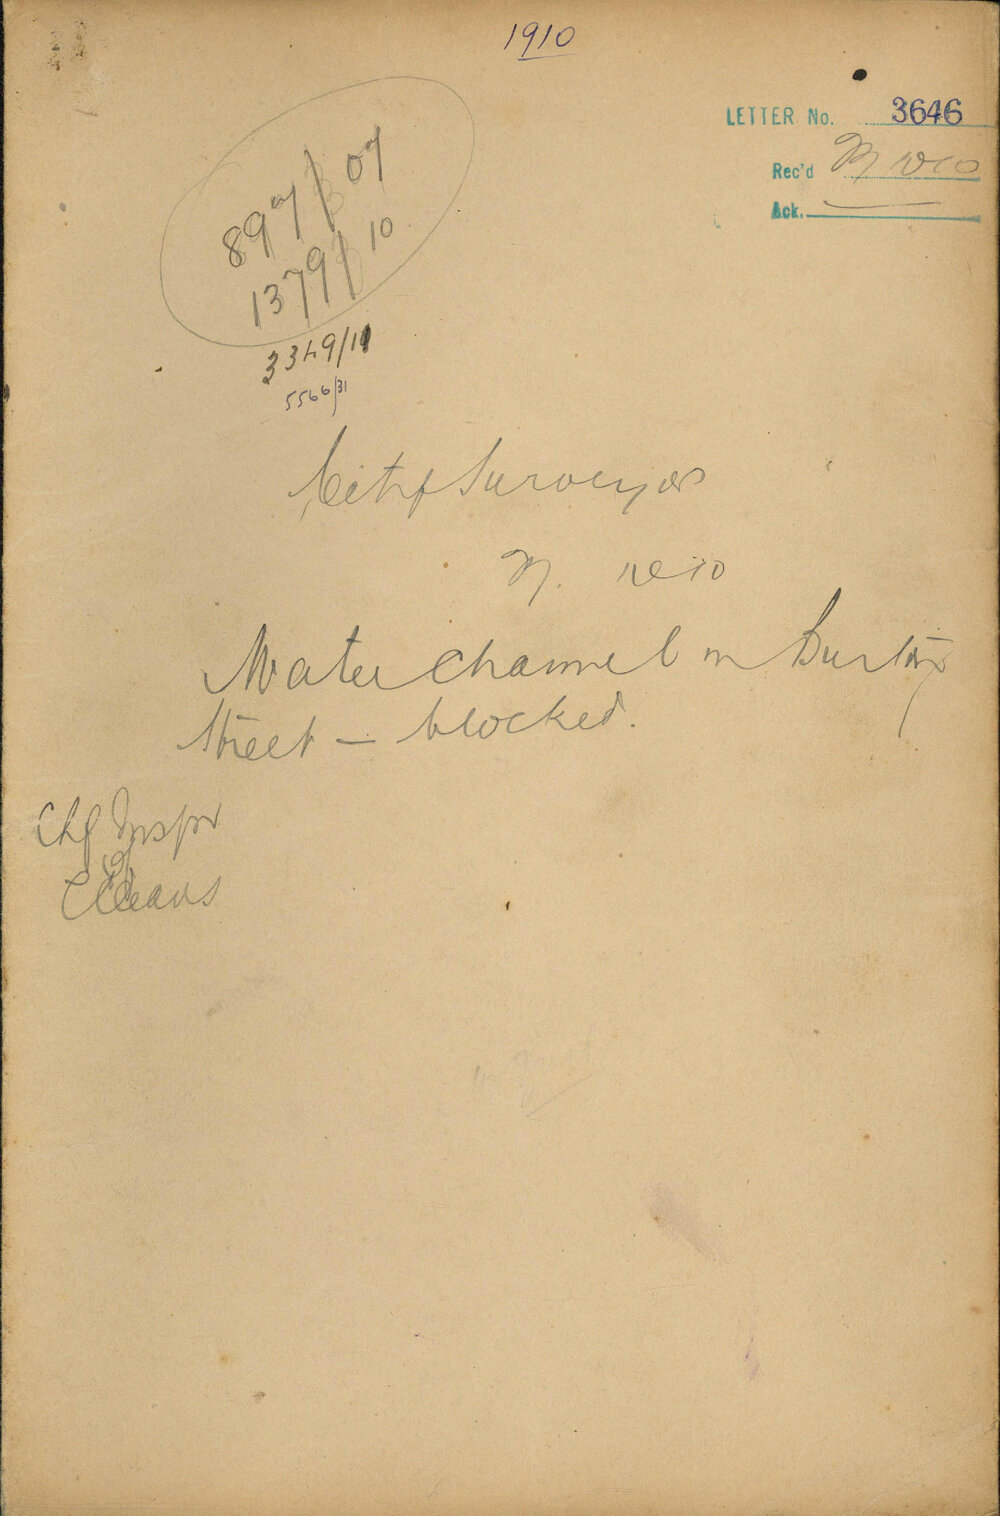 1910
LETTER No. 3646
Rec'd
Ack.
897/07
1379/10
3349/11
5566/31
City Surveyor
Water channel in Burton
Street — blocked.
Chf Inspr
of
Cleans